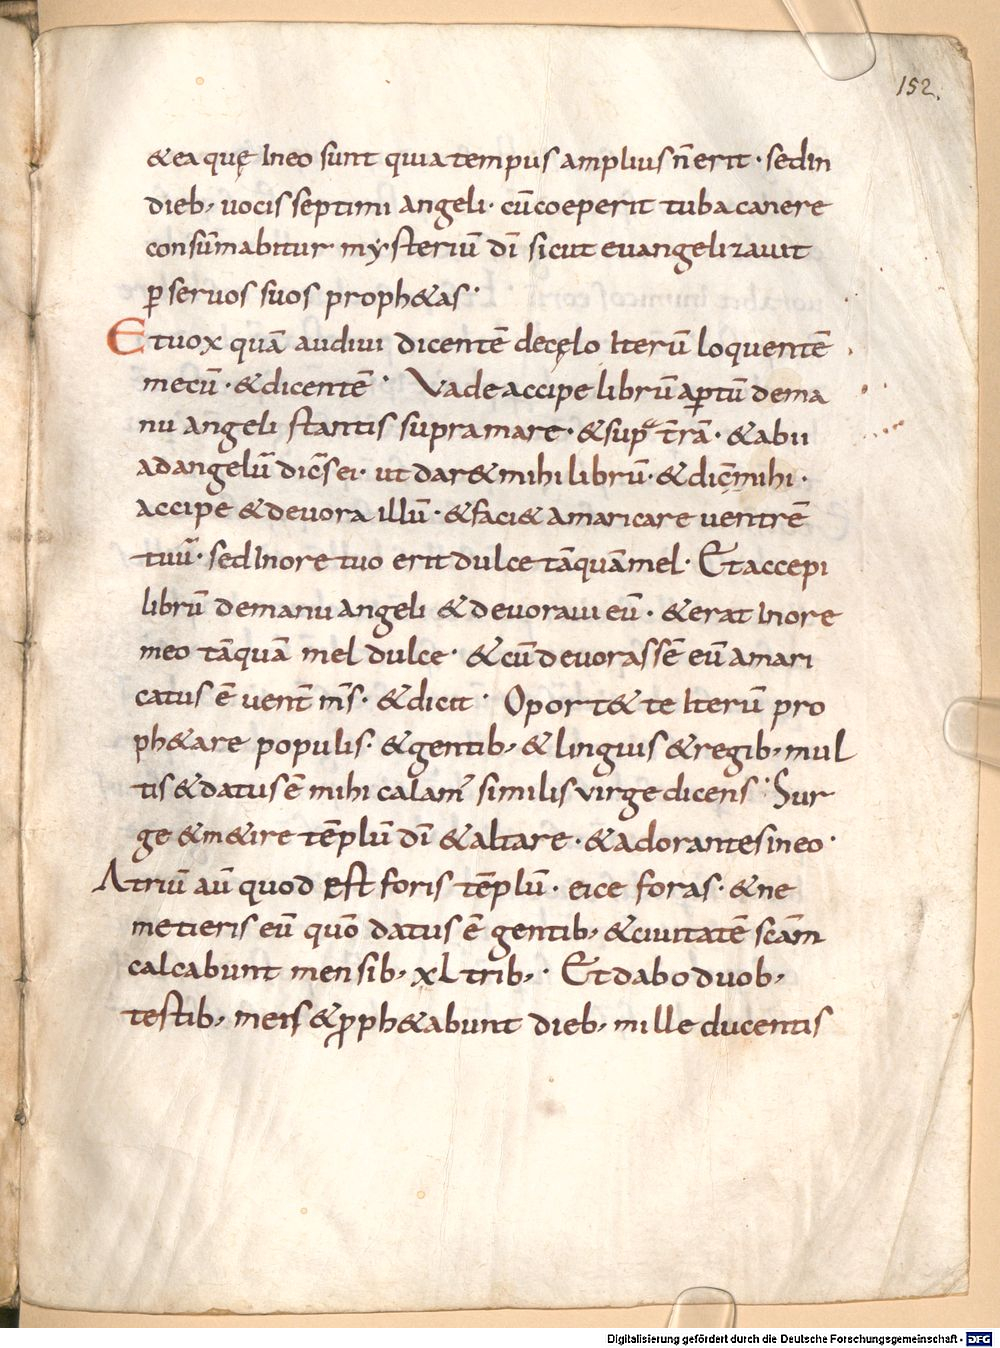 152.
& ea quę In eo sunt quia tempus amplius n̄ erit · sed In
dieb; uocis septimi angeli · cū coeperit tuba canere
consūmabitur mysteriū dī sicut euangelizauit
ꝑ seruos suos proph&as ·
Et uox quā audiui dicentē de cęlo Iterū loquentē
mecū · & dicentē · Vade accipe librū aꝑtū de ma
nu angeli stantis supra mare · & sup̄ t̄rā · & abii
ad angelū dic̄s ei · ut dar& mihi librū · & dic̄ mihi ·
accipe & deuora illū · & faci& amaricare uentrē
tuū · sed In ore tuo erit dulce tāquā mel · Et accepi
librū de manu angeli & deuoraui eū · & erat In ore
meo tāquā mel dulce · & cū deuorassē eū amari
catus ē uent̄ m̄s · & dicit · Oport& te Iterū pro
ph&are populis · & gentib; & linguis & regib; mul
tis & datus ē mihi calam̄ similis virge dicens · Sur
ge & m&ire tēplū dī & altare · & adorantes in eo ·
Atriū aū quod est foris tēplū · eice foras · & ne
metieris eū quō datus ē gentib; & ciuitatē scām
calcabunt mensib; xl trib; · Et dabo duob;
testib; meis & ꝓph&abunt dieb; mille ducentis
Digitalisierung gefördert durch die Deutsche Forschungsgemeinschaft - DFG